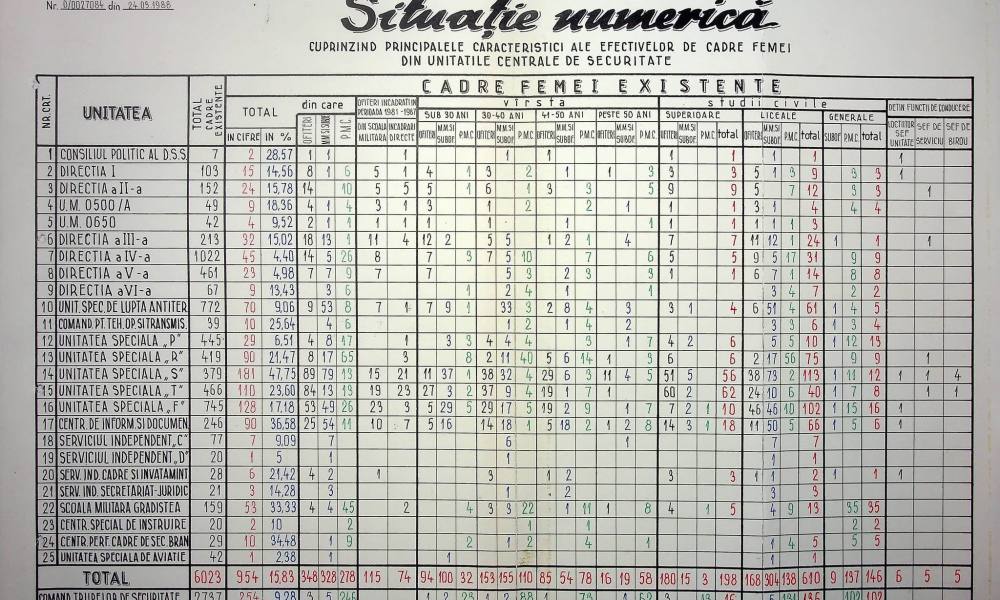 Nr. 0/0027084 din 24.09.1988
Situație numerică
CUPRINZIND PRINCIPALELE CARACTERISTICI ALE EFECTIVELOR DE CADRE FEMEI
DIN UNITATILE CENTRALE DE SECURITATE
NR.CRT. UNITATEA TOTAL CADRE EXISTENTE CADRE FEMEI EXISTENTE
TOTAL din care OFITERI INCADRATI IN PERIOADA 1981-1987 vîrsta studii civile DETIN FUNCTII DE CONDUCERE
SUB 30 ANI 30-40 ANI 41-50 ANI PESTE 50 ANI SUPERIOARE LICEALE GENERALE
IN CIFRE IN % OFITERI M.M. SI SUBOF. P.M.C. DIN SCOALA MILITARA INCADRARI DIRECTE OFITERI M.M.SI SUBOF. P.M.C. OFITERI M.M.SI SUBOF. P.M.C. OFITERI M.M.SI SUBOF. P.M.C. OFITERI M.M.SI SUBOF. P.M.C. OFITERI M.M.SI SUBOF. P.M.C. total OFITERI M.M.SI SUBOF. P.M.C. total SUBOF. P.M.C. total LOCTIITOR SEF UNITATE SEF DE SERVICIU SEF DE BIROU
1 CONSILIUL POLITIC AL D.S.S. 7 2 28,57 1 1 1 1 1 1 1 1 1 1
2 DIRECTIA I 103 15 14,56 8 1 6 5 1 4 3 2 1 1 3 3 3 5 1 3 9 3 3 1
3 DIRECTIA a II-a 152 24 15,78 14 10 5 5 5 1 6 1 3 3 5 9 9 5 7 12 3 3 1
4 U.M. 0500/A 49 9 18,36 4 1 4 3 1 3 1 2 2 1 1 1 3 1 4 4 4
5 U.M. 0650 42 4 9,52 2 1 1 1 1 1 1 1 1 1 1 1 1 1 3
6 DIRECTIA a III-a 213 32 15,02 18 13 1 11 4 12 2 5 5 1 2 1 4 7 7 11 12 1 24 1 1 1
7 DIRECTIA a IV-a 1022 45 4,40 14 5 26 8 7 3 7 5 10 7 6 5 5 9 5 17 31 9 9
8 DIRECTIA a V-a 461 23 4,98 7 7 9 7 7 5 3 2 3 3 1 1 6 7 1 14 8 8
9 DIRECTIA a VI-a 67 9 13,43 3 6 1 2 4 1 1 3 4 7 2 2
10 UNIT. SPEC. DE LUPTA ANTITER. 772 70 9,06 9 53 8 7 1 7 9 1 33 3 2 8 4 3 3 1 4 6 51 4 61 1 4 5
11 COMAND. PT. TEH. OP. SI TRANSMIS. 39 10 25,64 4 6 1 2 1 4 2 3 3 6 1 3 4
12 UNITATEA SPECIALA „P” 445 29 6,51 4 8 17 1 3 3 4 4 4 3 1 7 4 2 6 5 5 10 1 12 13
13 UNITATEA SPECIALA „R” 419 90 21,47 8 17 65 3 8 2 11 40 5 6 14 1 3 6 6 2 17 56 75 9 9 1
14 UNITATEA SPECIALA „S” 379 181 47,75 89 79 13 15 21 11 37 1 38 32 4 29 6 3 11 4 5 51 5 56 38 73 2 113 1 11 12 1 1 4
15 UNITATEA SPECIALA „T” 466 110 23,60 84 13 13 19 23 27 3 2 37 9 4 19 1 7 1 60 2 62 24 10 6 40 1 7 8 1 1
16 UNITATEA SPECIALA „F” 745 128 17,18 53 49 26 23 3 5 29 5 29 17 5 19 2 9 1 7 7 2 1 10 46 46 10 102 1 15 16 1
17 CENTR. DE INFORM. SI DOCUMEN. 246 90 36,58 25 54 11 10 7 5 16 14 18 1 5 18 2 1 2 8 14 3 1 18 11 50 5 66 1 5 6 1
18 SERVICIUL INDEPENDENT „C” 77 7 9,09 7 6 1 7 7
19 SERVICIUL INDEPENDENT „D” 20 1 5 1 1 1 1
20 SERV. IND. CADRE SI INVATAMINT 28 6 21,42 4 2 1 3 1 2 3 3 1 1 2 1 1 1
21 SERV. IND. SECRETARIAT-JURIDIC 21 3 14,28 3 1 2 3 3
22 SCOALA MILITARA GRADISTEA 159 53 33,33 4 4 45 2 4 3 3 22 1 11 1 8 4 1 5 4 9 13 35 35
23 CENTR. SPECIAL DE INSTRUIRE 20 2 10 2 1 1 2 2
24 CENTR. PERF. CADRE DE SEC. BRAN 29 10 34,48 1 9 2 1 2 4 1 1 4 5 5 5
25 UNITATEA SPECIALA DE AVIATIE 42 1 2,38 1 1 1 1
TOTAL 6023 954 15,83 348 328 278 115 74 94 100 32 153 155 110 85 54 78 16 19 58 180 15 3 198 168 304 138 610 9 137 146 6 5 5
COMAND. TRUPELOR DE SECURITATE 2737 254 9,28 3 5 246